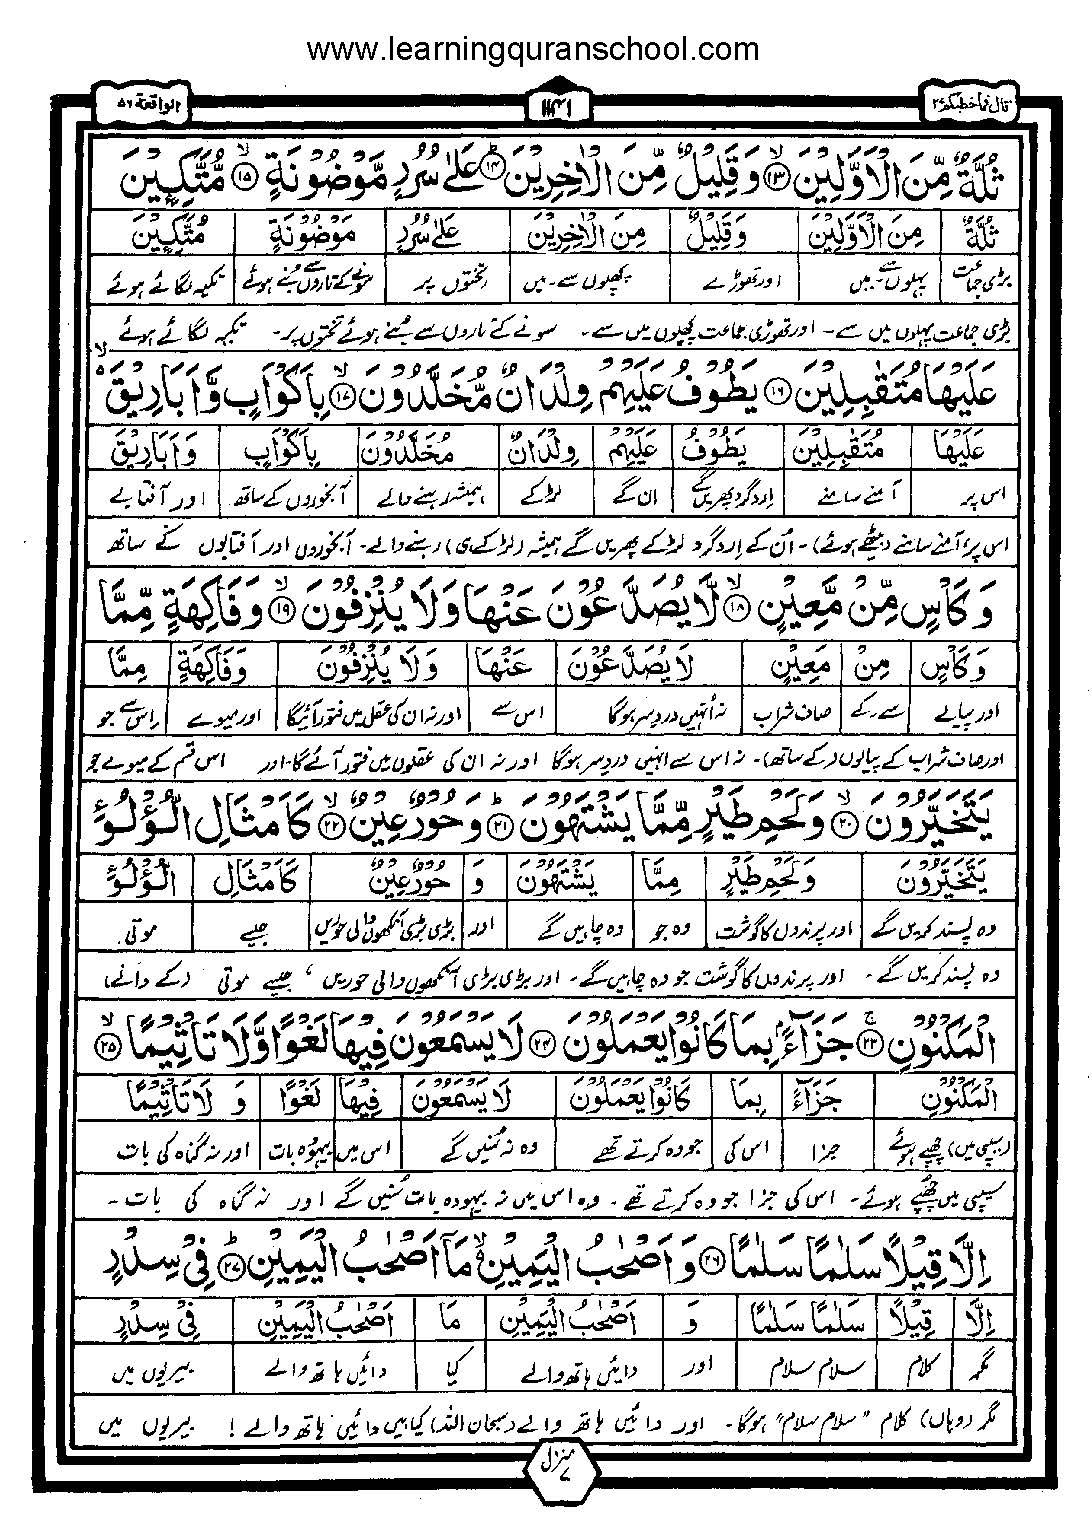 www.learningquranschool.com
قال فما خطبكم ٢٧ ١١٤١ الواقعة ٥٦
ثُلَّةٌ مِّنَ الْاَوَّلِيْنَ ۝١٣ وَقَلِيْلٌ مِّنَ الْاٰخِرِيْنَ ۝١٤ عَلٰى سُرُرٍ مَّوْضُوْنَةٍ ۝١٥ مُّتَّكِـِٕيْنَ
ثُلَّةٌ مِنَ الْاَوَّلِيْنَ وَقَلِيْلٌ مِنَ الْاٰخِرِيْنَ عَلٰى سُرُرٍ مَوْضُوْنَةٍ مُتَّكِـِٕيْنَ
بڑی جماعت پہلوں سے۔ میں اور تھوڑے پچھلوں سے۔ میں تختوں پر سونے کے تاروں سے بُنے ہوئے تکیہ لگائے ہوئے
بڑی جماعت پہلوں میں سے۔ اور تھوڑی جماعت پچھلوں میں سے۔ سونے کے تاروں سے بُنے ہوئے تختوں پر۔ تکیہ لگائے ہوئے
عَلَيْهَا مُتَقٰبِلِيْنَ ۝١٦ يَطُوْفُ عَلَيْهِمْ وِلْدَانٌ مُّخَلَّدُوْنَ ۝١٧ بِاَكْوَابٍ وَّاَبَارِيْقَ
عَلَيْهَا مُتَقٰبِلِيْنَ يَطُوْفُ عَلَيْهِمْ وِلْدَانٌ مُخَلَّدُوْنَ بِاَكْوَابٍ وَاَبَارِيْقَ
اس پر آمنے سامنے اردگرد پھریں گے ان کے لڑکے ہمیشہ رہنے والے آبخوروں کے ساتھ اور آفتابے
اس پر، آمنے سامنے (بیٹھے ہوئے)۔ اُن کے اردگرد لڑکے پھریں گے ہمیشہ (لڑکے ہی) رہنے والے۔ آبخوروں اور آفتابوں کے ساتھ
وَكَاْسٍ مِّنْ مَّعِيْنٍ ۝١٨ لَّا يُصَدَّعُوْنَ عَنْهَا وَلَا يُنْزِفُوْنَ ۝١٩ وَفَاكِهَةٍ مِّمَّا
وَكَاْسٍ مِنْ مَعِيْنٍ لَا يُصَدَّعُوْنَ عَنْهَا وَلَا يُنْزِفُوْنَ وَفَاكِهَةٍ مِمَّا
اور پیالے سے۔ کے صاف شراب نہ اُنہیں دردِ سر ہوگا اس سے اور نہ ان کی عقل میں فتور آئیگا اور میوے اس سے جو
اور صاف شراب کے پیالوں (کے ساتھ)۔ نہ اس سے انہیں دردِ سر ہوگا اور نہ ان کی عقلوں میں فتور آئے گا۔ اور اس قسم کے میوے جو
يَتَخَيَّرُوْنَ ۝٢٠ وَلَحْمِ طَيْرٍ مِّمَّا يَشْتَهُوْنَ ۝٢١ وَحُوْرٌ عِيْنٌ ۝٢٢ كَاَمْثَالِ اللُّؤْلُؤِ
يَتَخَيَّرُوْنَ وَلَحْمِ طَيْرٍ مِمَّا يَشْتَهُوْنَ وَ حُوْرٌ عِيْنٌ كَاَمْثَالِ اللُّؤْلُؤِ
وہ پسند کریں گے اور پرندوں کا گوشت وہ جو وہ چاہیں گے اور بڑی بڑی آنکھوں والی حوریں جیسے موتی
وہ پسند کریں گے۔ اور پرندوں کا گوشت جو وہ چاہیں گے۔ اور بڑی بڑی آنکھوں والی حوریں، جیسے موتی (کے دانے)
الْمَكْنُوْنِ ۝٢٣ جَزَآءًۢ بِمَا كَانُوْا يَعْمَلُوْنَ ۝٢٤ لَا يَسْمَعُوْنَ فِيْهَا لَغْوًا وَّلَا تَاْثِيْمًا ۝٢٥
الْمَكْنُوْنِ جَزَآءً بِمَا كَانُوْا يَعْمَلُوْنَ لَا يَسْمَعُوْنَ فِيْهَا لَغْوًا وَ لَا تَاْثِيْمًا
(سیپی میں) چھپے ہوئے جزا اس کی جو وہ کرتے تھے وہ نہ سُنیں گے اس میں بیہودہ بات اور نہ گناہ کی بات
سیپی میں چھپے ہوئے۔ اس کی جزا جو وہ کرتے تھے۔ وہ اس میں نہ بیہودہ بات سُنیں گے اور نہ گناہ کی بات۔
اِلَّا قِيْلًا سَلٰمًا سَلٰمًا ۝٢٦ وَاَصْحٰبُ الْيَمِيْنِ ۙ مَاۤ اَصْحٰبُ الْيَمِيْنِ ۝٢٧ فِيْ سِدْرٍ
اِلَّا قِيْلًا سَلٰمًا سَلٰمًا وَ اَصْحٰبُ الْيَمِيْنِ مَا اَصْحٰبُ الْيَمِيْنِ فِيْ سِدْرٍ
مگر کلام سلام سلام اور دائیں ہاتھ والے کیا دائیں ہاتھ والے بیریوں میں
مگر (وہاں) کلام "سلام سلام" ہوگا۔ اور دائیں ہاتھ والے (سبحان اللہ) کیا ہیں دائیں ہاتھ والے! بیریوں میں
منزل ٧